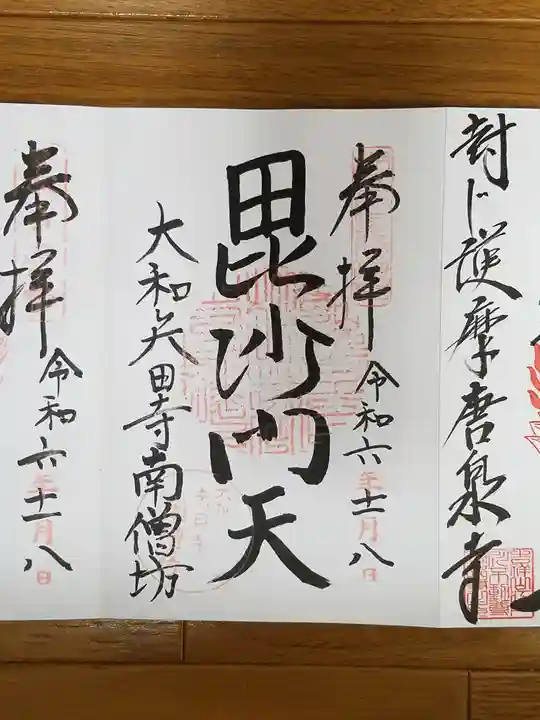 封じ護摩唐泉寺
奉拝
令和六年十一月八日
毘沙門天
大和矢田寺南僧坊
奉拝
令和六年十一月八日